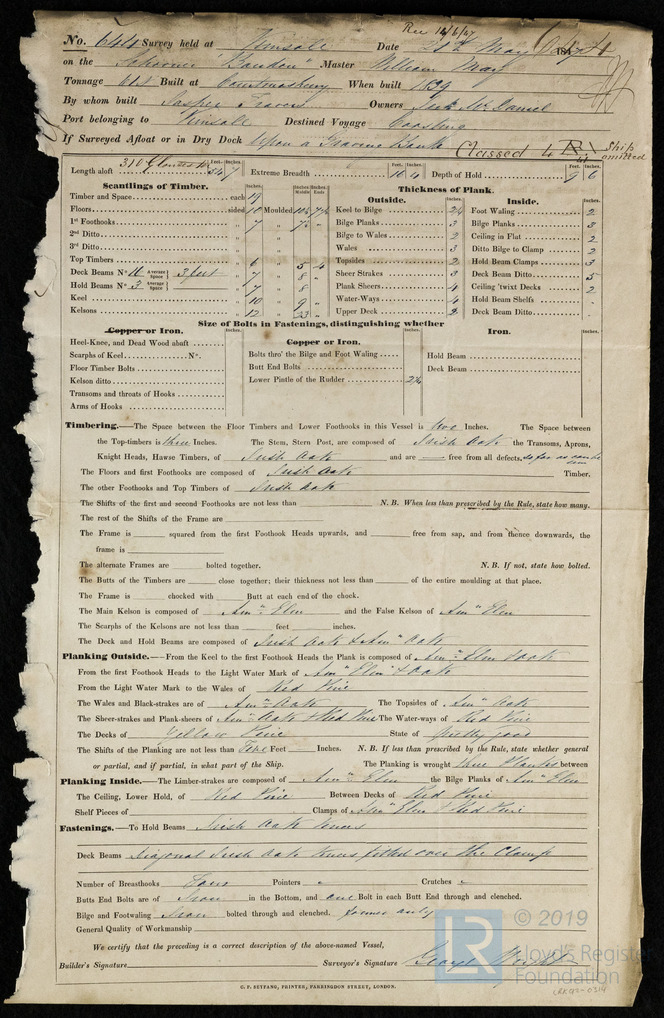 Rec 14/6/47
No. 644 Survey held at Kinsale Date 24th May 184
on the Schooner "Bandon" Master William May
Tonnage Built at Courtmasherry When built 1839
By whom built Jasper Travers Owners Jack McDaniel
Port belonging to Kinsale Destined Voyage Coasting
If Surveyed Afloat or in Dry Dock Upon a Graving Bank
Classed 4 A 1 Ship omitted
Feet. Inches.
Length aloft 54 7 Extreme Breadth 16 4 Depth of Hold 9 6
Scantlings of Timber.
Timber and Space each 19
Floors sided 10 Moulded
1st Foothooks 7
2nd Ditto
3rd Ditto
Top Timbers 6 5 4
Deck Beams No. 11 Average Space 3 feet 7 8
Hold Beams No. 3 Average Space 7 8
Keel 10 9
Kelsons 12 23
Thickness of Plank.
Outside.
Keel to Bilge 2¼
Bilge Planks 3
Bilge to Wales 2
Wales 3
Topsides 2
Sheer Strakes 3
Plank Sheers 4
Water-Ways 4
Upper Deck 2
Inside.
Foot Waling 2
Bilge Planks 3
Ceiling in Flat 2
Ditto Bilge to Clamp 2
Hold Beam Clamps 3
Deck Beam Ditto 5
Ceiling 'twixt Decks 2
Hold Beam Shelfs -
Deck Beam Ditto -
Size of Bolts in Fastenings, distinguishing whether
Copper or Iron.
Heel-Knee, and Dead Wood abaft
Scarphs of Keel No.
Floor Timber Bolts
Kelson ditto
Transoms and throats of Hooks
Arms of Hooks
Copper or Iron.
Bolts thro' the Bilge and Foot Waling
Butt End Bolts
Lower Pintle of the Rudder 2¼
Iron.
Hold Beam
Deck Beam
Timbering.—The Space between the Floor Timbers and Lower Foothooks in this Vessel is two Inches. The Space between
the Top-timbers is three Inches. The Stem, Stern Post, are composed of Irish Oak the Transoms, Aprons,
Knight Heads, Hawse Timbers, of Irish Oak and are — free from all defects, so far as can be seen
The Floors and first Foothooks are composed of Irish Oak Timber.
The other Foothooks and Top Timbers of Irish Oak
The Shifts of the first and second Foothooks are not less than N.B. When less than prescribed by the Rule, state how many.
The rest of the Shifts of the Frame are
The Frame is squared from the first Foothook Heads upwards, and free from sap, and from thence downwards, the
frame is
The alternate Frames are bolted together. N.B. If not, state how bolted.
The Butts of the Timbers are close together; their thickness not less than of the entire moulding at that place.
The Frame is chocked with Butt at each end of the chock.
The Main Kelson is composed of Amn Elm and the False Kelson of Amn Elm
The Scarphs of the Kelsons are not less than feet inches.
The Deck and Hold Beams are composed of Irish Oak & Amn Oak
Planking Outside.—From the Keel to the first Foothook Heads the Plank is composed of Amn Elm & Oak
From the first Foothook Heads to the Light Water Mark of Amn Elm & Oak
From the Light Water Mark to the Wales of Red Pine
The Wales and Black-strakes are of Amn Oak The Topsides of Amn Oak
The Sheer-strakes and Plank-sheers of Amn Oak & Red Pine The Water-ways of Red Pine
The Decks of Yellow Pine State of Pretty good
The Shifts of the Planking are not less than Five Feet Inches. N.B. If less than prescribed by the Rule, state whether general
or partial, and if partial, in what part of the Ship. The Planking is wrought three Planks between
Planking Inside.—The Limber-strakes are composed of Amn Elm the Bilge Planks of Amn Elm
The Ceiling, Lower Hold, of Red Pine Between Decks of Red Pine
Shelf Pieces of Clamps of Amn Elm & Red Pine
Fastenings.—To Hold Beams Irish Oak knees
Deck Beams Diagonal Irish Oak knees fitted over the Clamp
Number of Breasthooks Four Pointers - Crutches -
Butts End Bolts are of Iron in the Bottom, and one Bolt in each Butt End through and clenched.
Bilge and Footwaling Iron bolted through and clenched. former only
General Quality of Workmanship
We certify that the preceding is a correct description of the above-named Vessel,
Builder's Signature Surveyor's Signature George
G. F. SEYFANG, PRINTER, FARRINGDON STREET, LONDON.
LR
© 2019
Lloyd's Register
Foundation